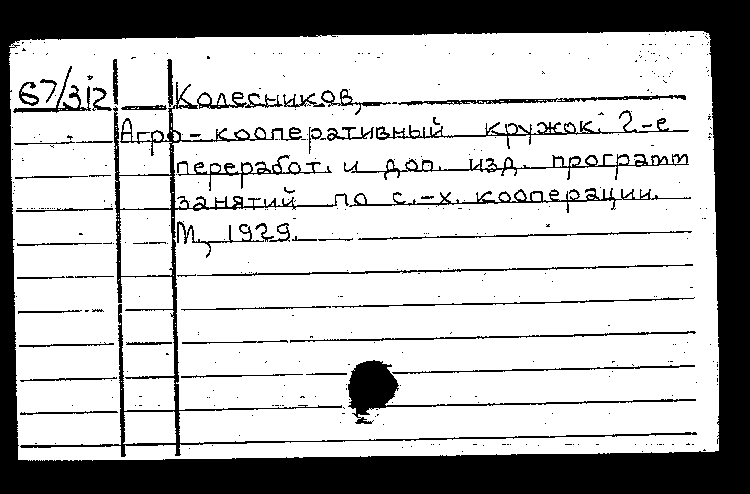 67/312 Колесников,
Агро-кооперативный кружок. 2-е
переработ. и доп. изд. программ
занятий по с.-х. кооперации.
М., 1929.